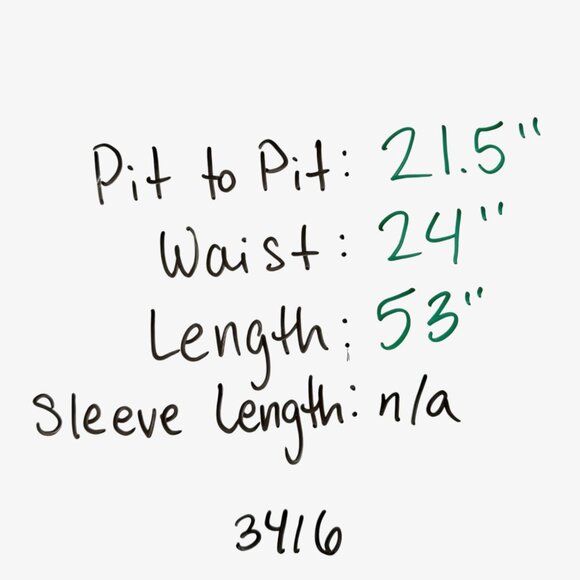 Pit to Pit: 21.5"
Waist: 24"
Length: 53"
Sleeve Length: n/a
3416